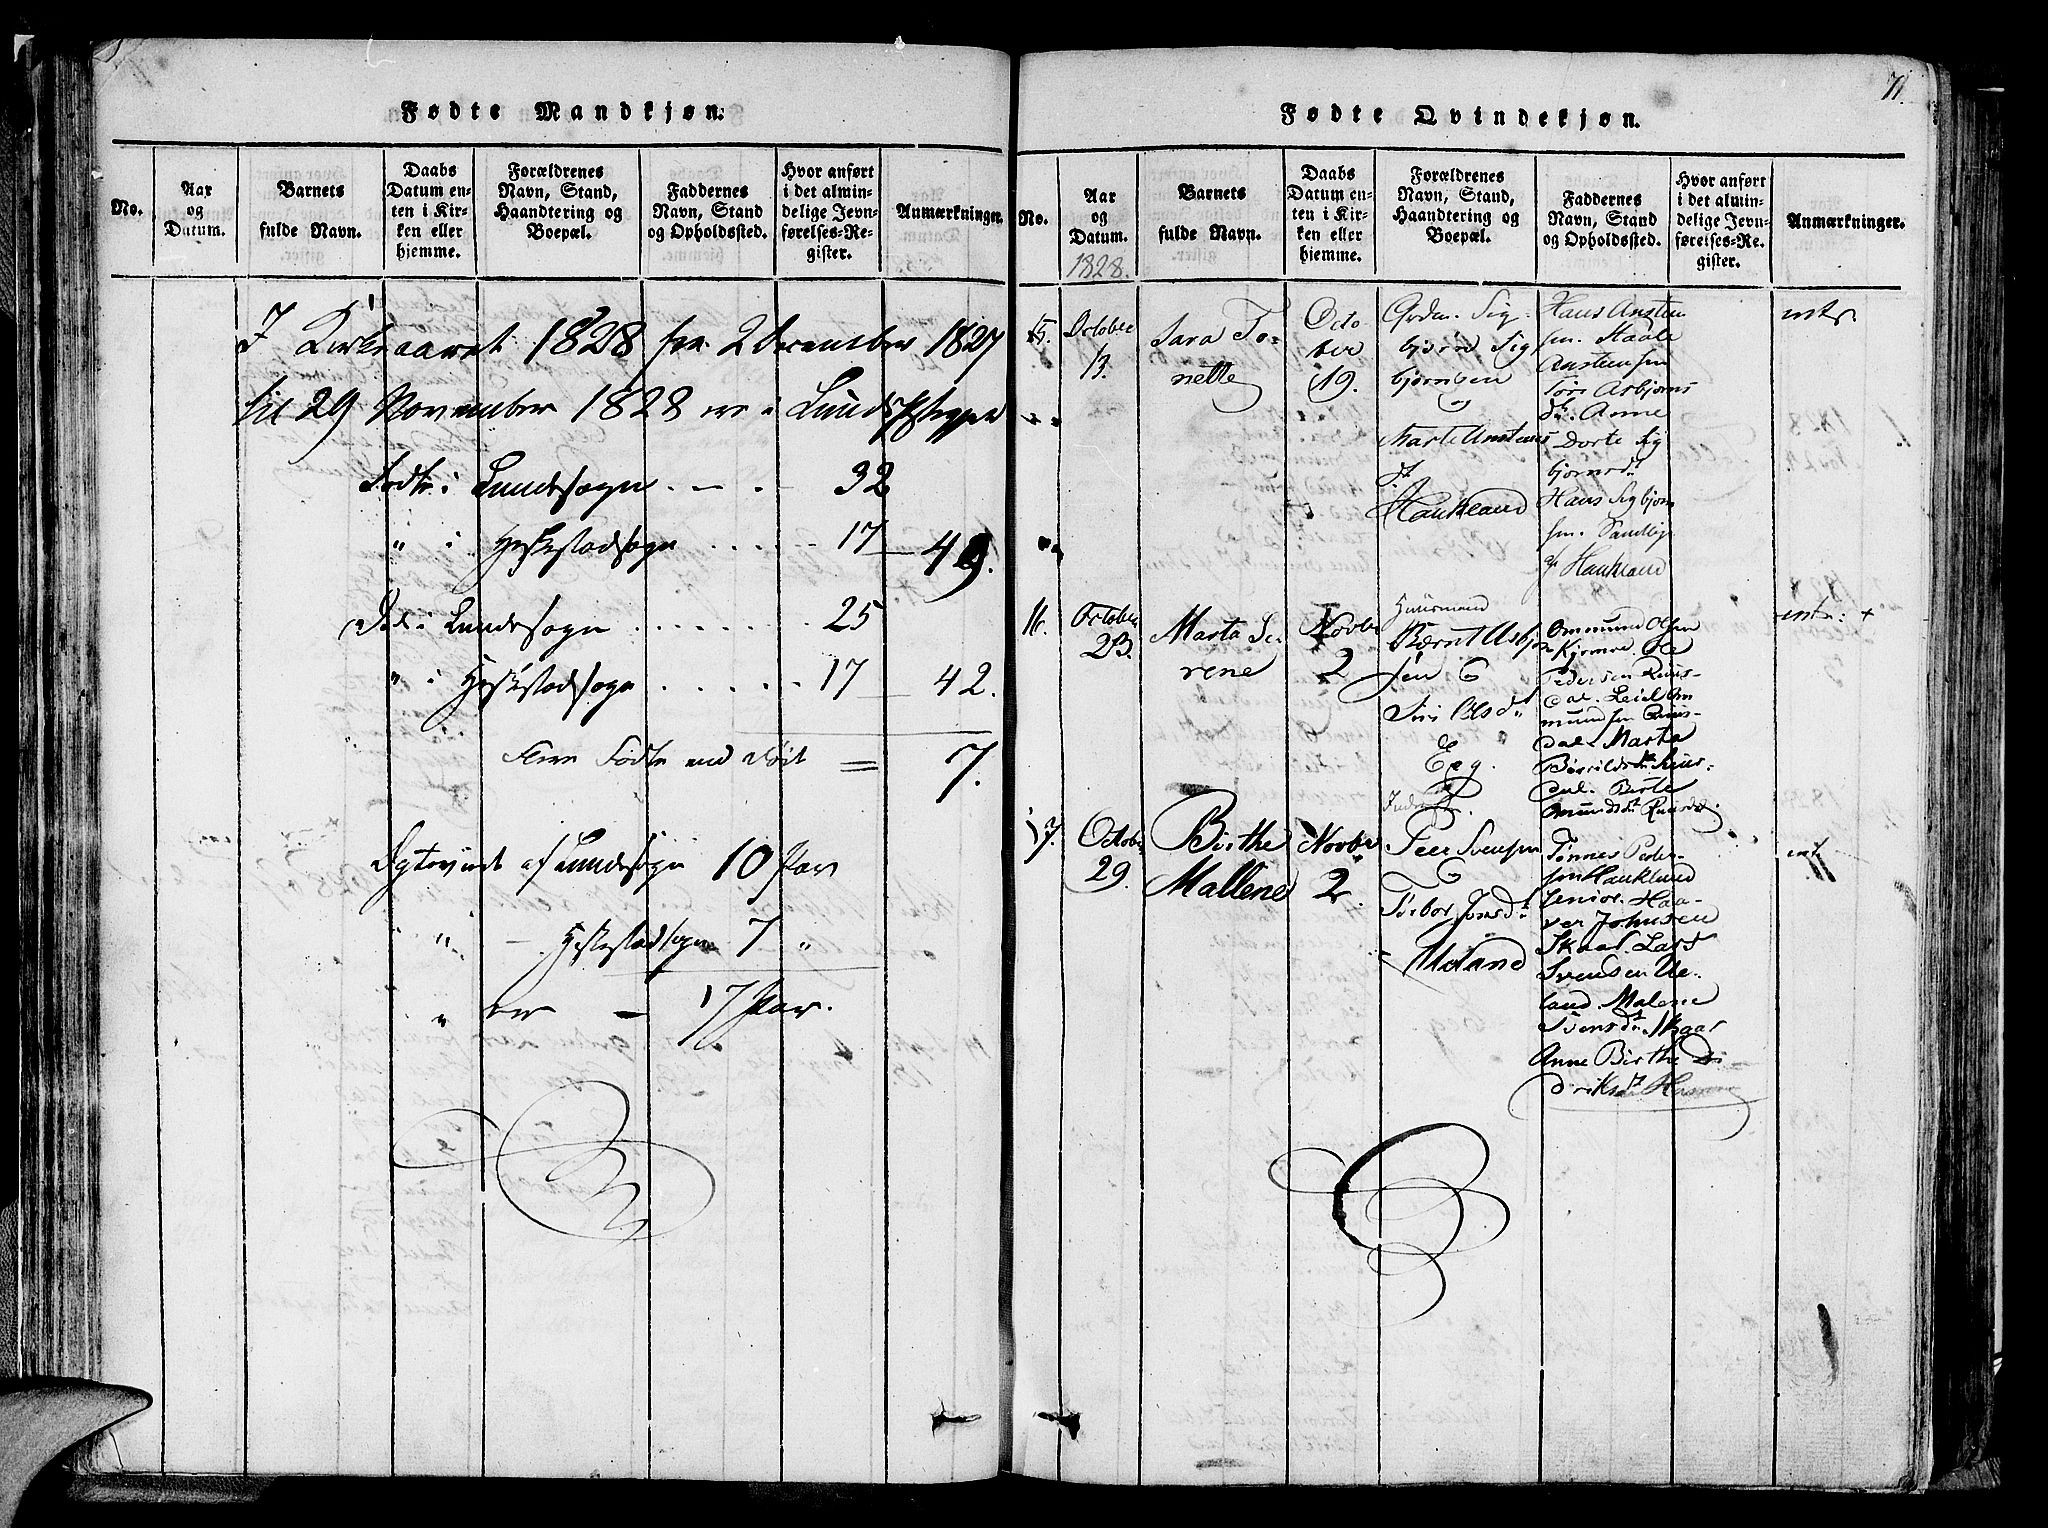 Fødte Mandkjøn.
No.
Aar
og
Datum.
Barnets
fulde Navn.
Daabs
Datum en-
ten i Kir-
ken eller
hjemme.
Forældrenes
Navn, Stand,
Haandtering og
Boepæl.
Faddernes
Navn, Stand
og Opholdssted.
Hvor anført
i det almin-
delige Jevn-
førelses-Re-
gister.
Anmærkninger.
I Kirkeaaret 1828 fra 2 December 1827
til 29 November 1828 ere i Lunds
Fødte i Lundesogn . - . 32
" i Heskestadsogn . . . . . 17 — 49.
Død i Lundesogn . . . . . . . 25
" i Heskestadsogn . . . . . 17 — 42.
Flere Fødte end Død = 7.
Egteviet af Lundesogn 10 Par
" - Heskestadsogn 7 "
" er - 17 Par.
71.
Fødte Qvindekjøn.
No.
Aar
og
Datum.
1828.
Barnets
fulde Navn.
Daabs
Datum en-
ten i Kir-
ken eller
hjemme.
Forældrenes
Navn, Stand,
Haandtering og
Boepæl.
Faddernes
Navn, Stand
og Opholdssted.
Hvor anført
i det almin-
delige Jevn-
førelses-Re-
gister.
Anmærkninger.
15.
October
13.
Sara To-
nette
Octo
ber
19.
Grdm. Sig-
bjørn Sig
bjørnsen
og
Marte Anstens
dt.
Haukland
Hans Ansten
sen. Staale
Anstensen
Siri Asbjørns
dt. Anne
Dorte Sig
bjørnsdt
Hans Sigbjørn
sen.
af Haukland
intr.
16.
October
23.
Marta Se-
rene
Novbr
2
Huusmand
Bærnt Asbjørn
sen &
Siri Olsdt
Eeg.
Ommund Olsen
Kjørmoe. Ole
Pedersen Ruus-
dal. Leiel Om
mundsen Ruus-
dal. Marta
Bøorildsdt. Ruus-
dal. Birte
Omundsdt Ruusdal.
intr: +
17.
Octobr
29.
Birthe
Mallene
Novbr
2.
Peer Svensen
&
Torbor Jonsdt
Ueland
Tønnes Peder-
sen Haukland
Senior. Haa-
ver Johnsen
Skaar. Lars
Svensen Ue-
land. Malene
Svensdt. Skaar
Anne Birthe Di-
driksdt
int.